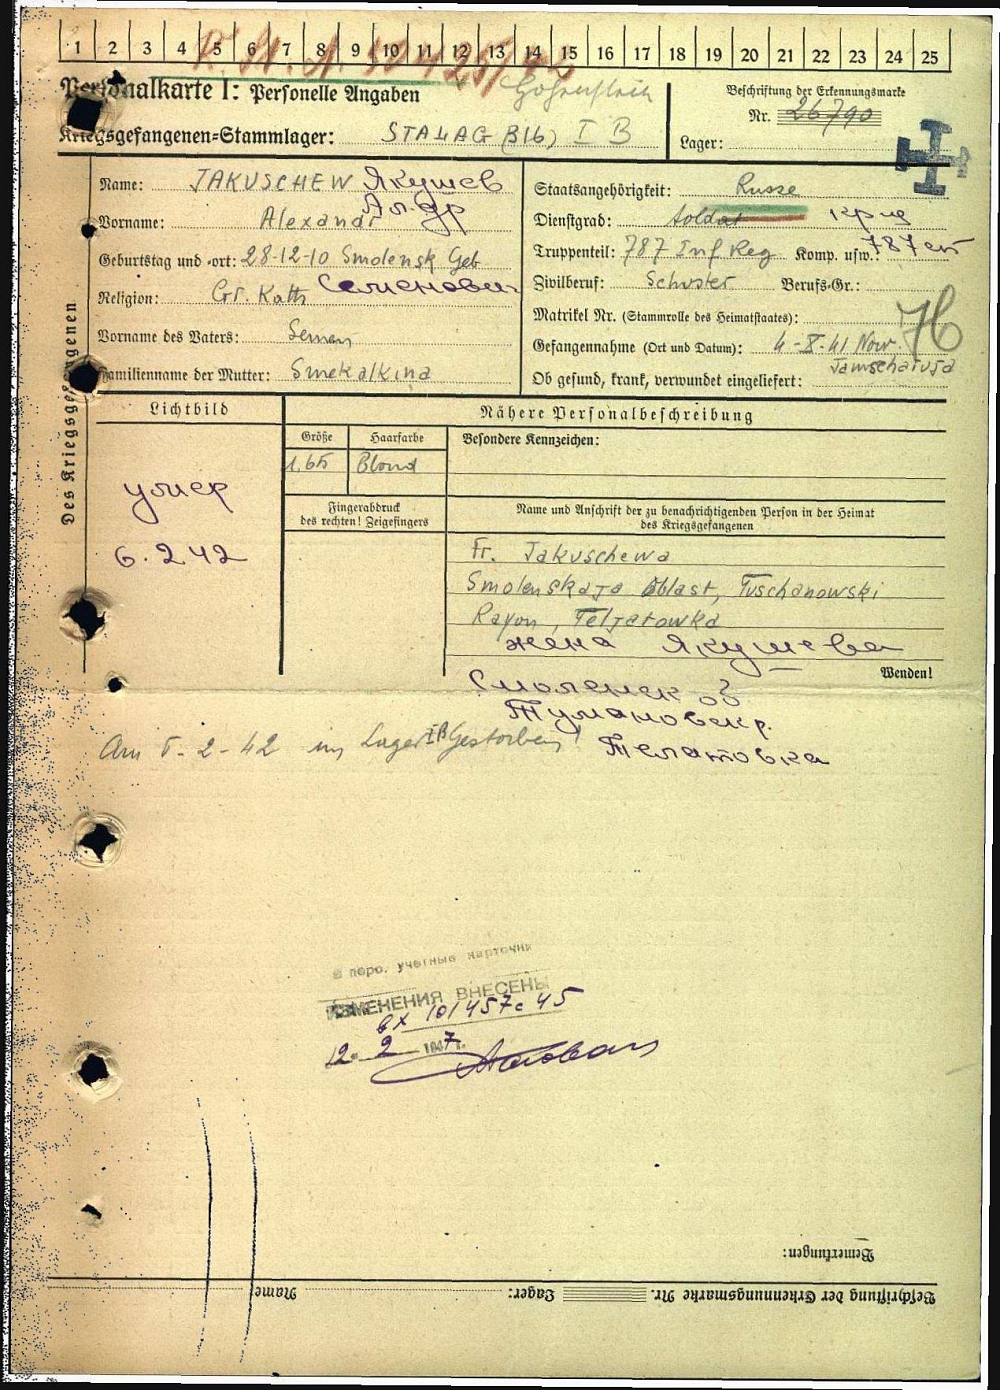 1 2 3 4 5 6 7 8 9 10 11 12 13 14 15 16 17 18 19 20 21 22 23 24 25
Personalkarte I: Personelle Angaben
Kriegsgefangenen=Stammlager: STALAG (316) I B
Beschriftung der Erkennungsmarke
Nr. 26790
Lager:
Des Kriegsgefangenen
Name: JAKUSCHEW Якушев
Vorname: Alexandr Ал-др
Geburtstag und -ort: 28-12-10 Smolensk Geb
Religion: Gr. Kath Семенович
Vorname des Vaters: Semen
Familienname der Mutter: Smekalkina
Staatsangehörigkeit: Russe
Dienstgrad: Soldat
Truppenteil: 787 Inf Reg Komp. usw.: 787 сп
Zivilberuf: Schuster Berufs-Gr.:
Matrikel Nr. (Stammrolle des Heimatstaates):
Gefangennahme (Ort und Datum): 4-X-41 Now.
Jamschatuja
Ob gesund, krank, verwundet eingeliefert:
76
Lichtbild
умер
6.2 42
Nähere Personalbeschreibung
Größe Haarfarbe Besondere Kennzeichen:
1,65 Blond
Fingerabdruck
des rechten! Zeigefingers
Name und Anschrift der zu benachrichtigenden Person in der Heimat
des Kriegsgefangenen
Fr. Jakuschewa
Smolenskaja Oblast, Tuschanowski
Rayon, Teljatowka
жена Якушева
Wenden!
Смоленск об
Тумановск р.
Телятовка
Am 6-2-42 im Lager IB Gestorben
В перс. учетные карточки
ИЗМЕНЕНИЯ ВНЕСЕНЫ
вх 101457с 45
12. 2 1947г.
Bemerkungen:
Name: Lager: Beschriftung der Erkennungsmarke Nr.